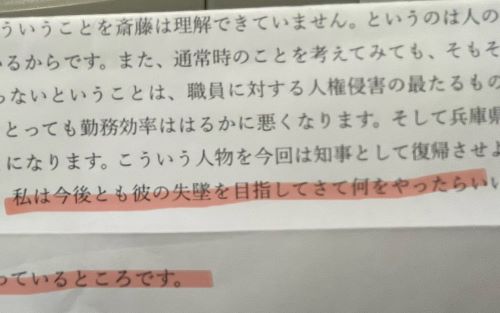 ういうことを斎藤は理解できていません。というのは人の
いるからです。また、通常時のことを考えてみても、そもそ
らないということは、職員に対する人権侵害の最たるもの
とっても勤務効率ははるかに悪くなります。そして兵庫県
になります。こういう人物を今回は知事として復帰させよ
私は今後とも彼の失墜を目指してさて何をやったらいい
っているところです。